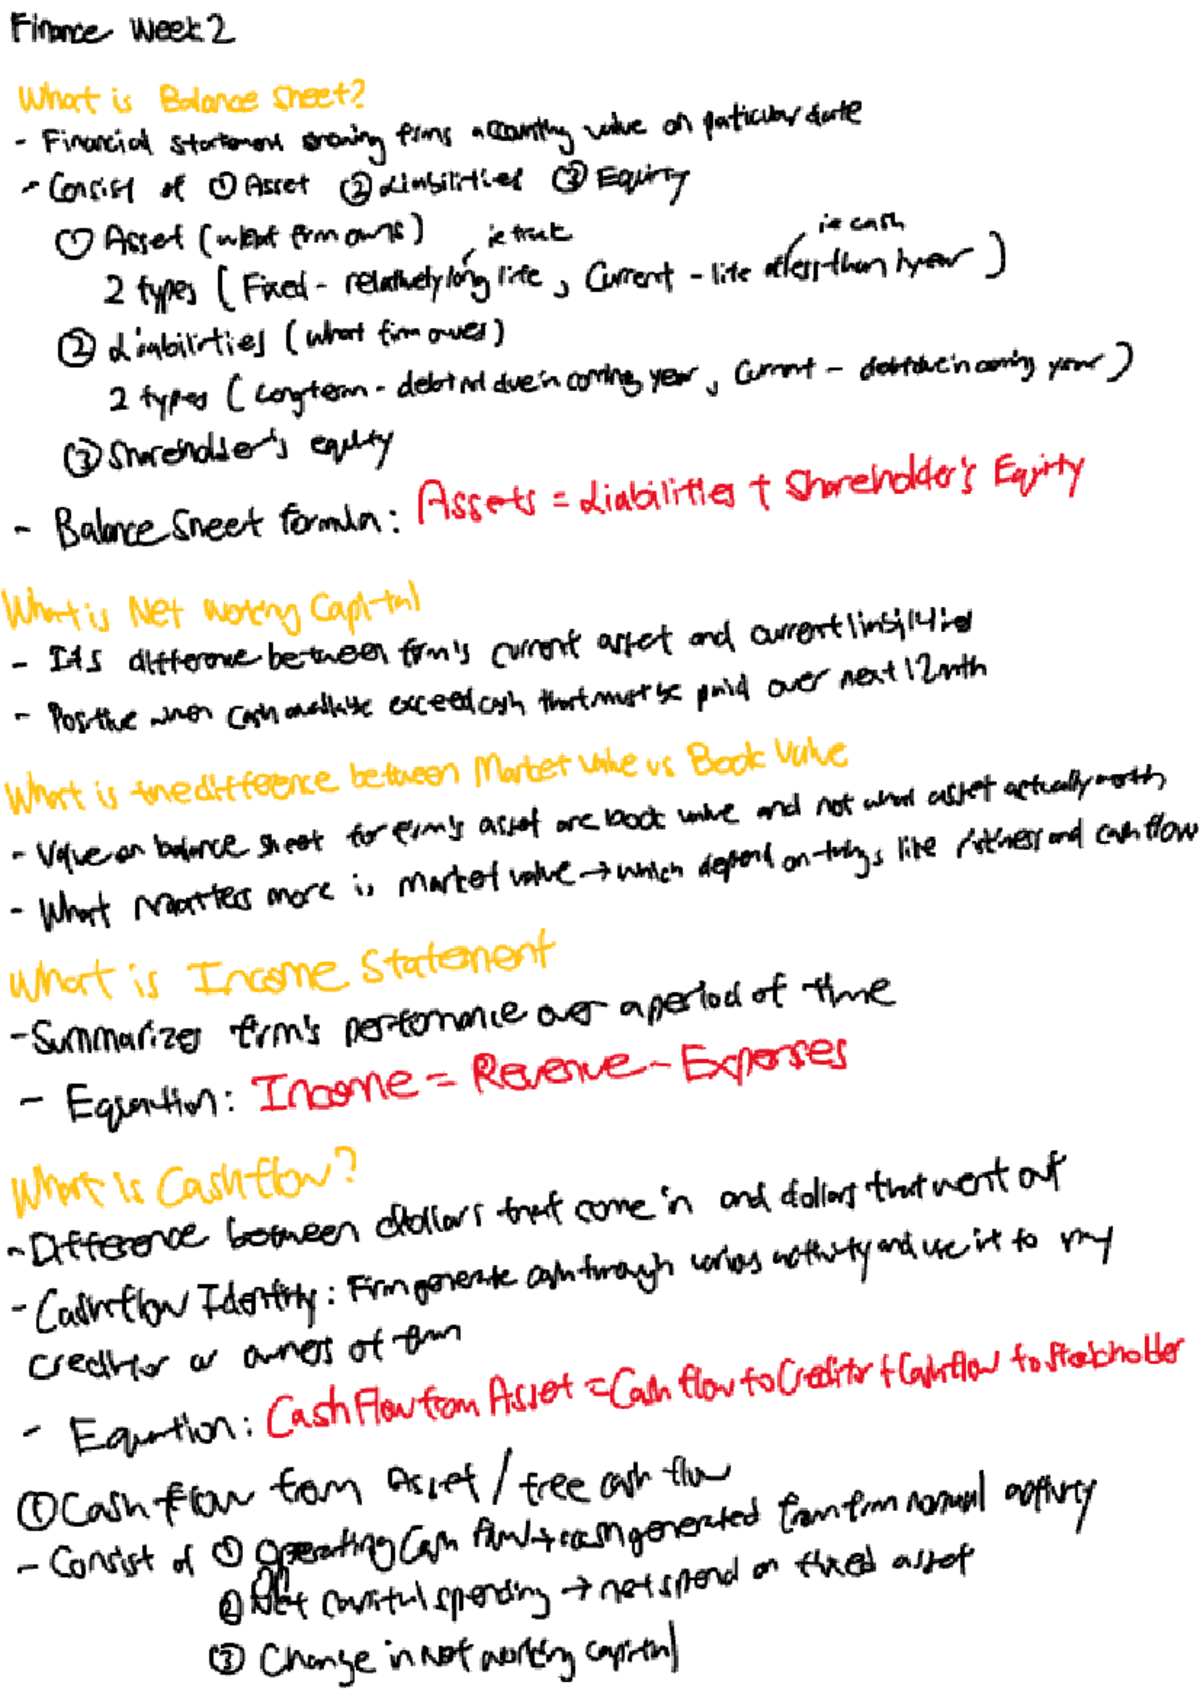 Finance Week 2
What is Balance Sheet?
- Financial statement showing firms accounting value on particular date
- Consist of ① Asset ② Liabilities ③ Equity
① Asset (what firm owns) ie truck ie cash
2 types (Fixed - relatively long life, Current - life of less than 1 year)
② Liabilities (what firm owes)
2 types (Longterm - debt not due in coming year, Current - debt due in coming year)
③ Shareholder's equity
- Balance Sheet formula: Assets = Liabilities + Shareholder's Equity
What is Net Working Capital
- It's difference between firm's current asset and current liabilities
- Positive when cash available exceed cash that must be paid over next 12 mth
What is the difference between Market Value vs Book Value
- Value on balance sheet for firm's asset are book value and not what asset actually worth
- What matters more is market value → which depend on things like riskness and cash flow
What is Income Statement
- Summarizes firm's performance over a period of time
- Equation: Income = Revenue - Expenses
What is Cashflow?
- Difference between dollars that come in and dollars that went out
- Cashflow Identity: Firm generate cash through various activity and use it to pay
creditor or owners of firm
- Equation: Cash Flow from Asset = Cash flow to Creditor + Cashflow to Stakeholder
① Cash flow from Asset / free cash flow
- Consist of ① Operating Cash flow → cash generated from firm normal activity
② Net capital spending → net spend on fixed asset
③ Change in Net working capital